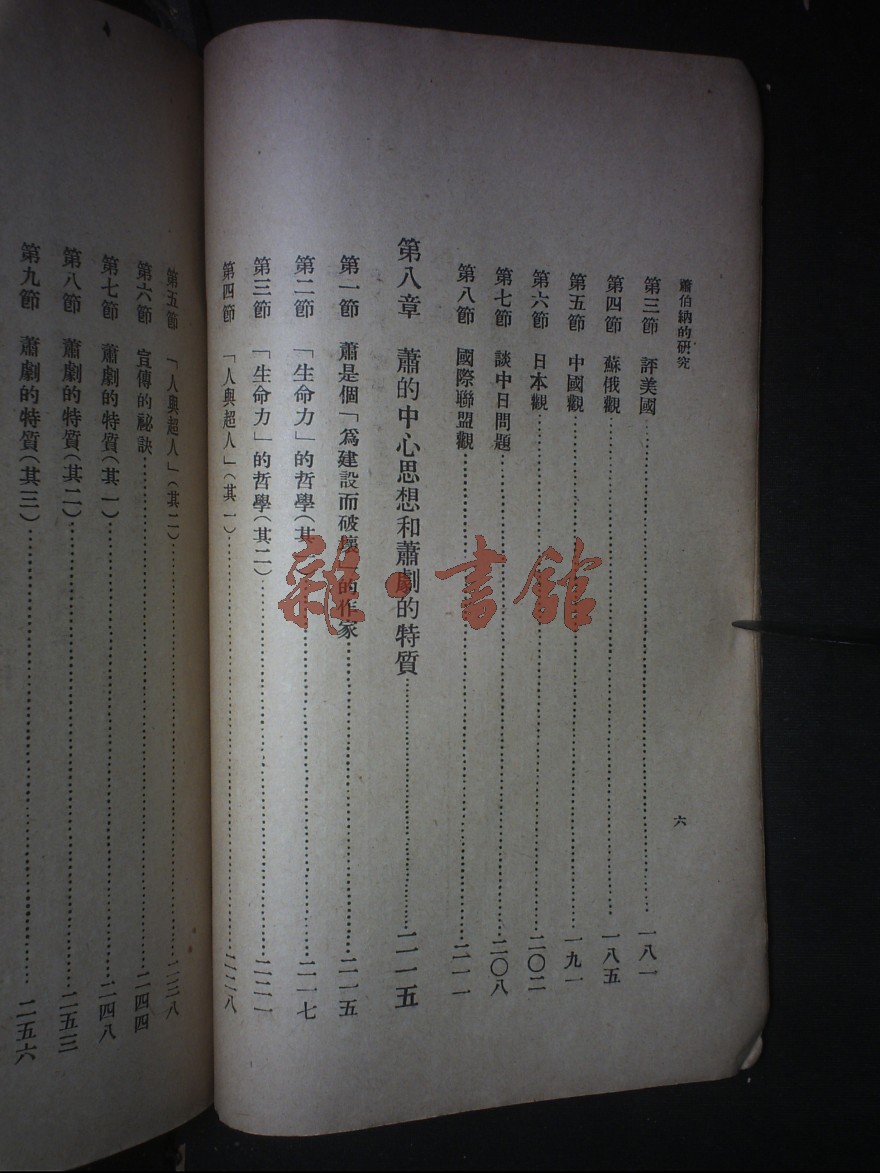 蕭伯納的研究
六
第三節 評美國……一八一
第四節 蘇俄觀……一八五
第五節 中國觀……一九一
第六節 日本觀……二〇二
第七節 談中日問題……二〇八
第八節 國際聯盟觀……二一一
第八章 蕭的中心思想和蕭劇的特質……二一五
第一節 蕭是個「爲建設而破壞」的作家……二一五
第二節 「生命力」的哲學（其一）……二一七
第三節 「生命力」的哲學（其二）……二二一
第四節 「人與超人」（其一）……二二八
第五節 「人與超人」（其二）……二三八
第六節 宣傳的祕訣……二四四
第七節 蕭劇的特質（其一）……二四八
第八節 蕭劇的特質（其二）……二五三
第九節 蕭劇的特質（其三）……二五六
雜·書館